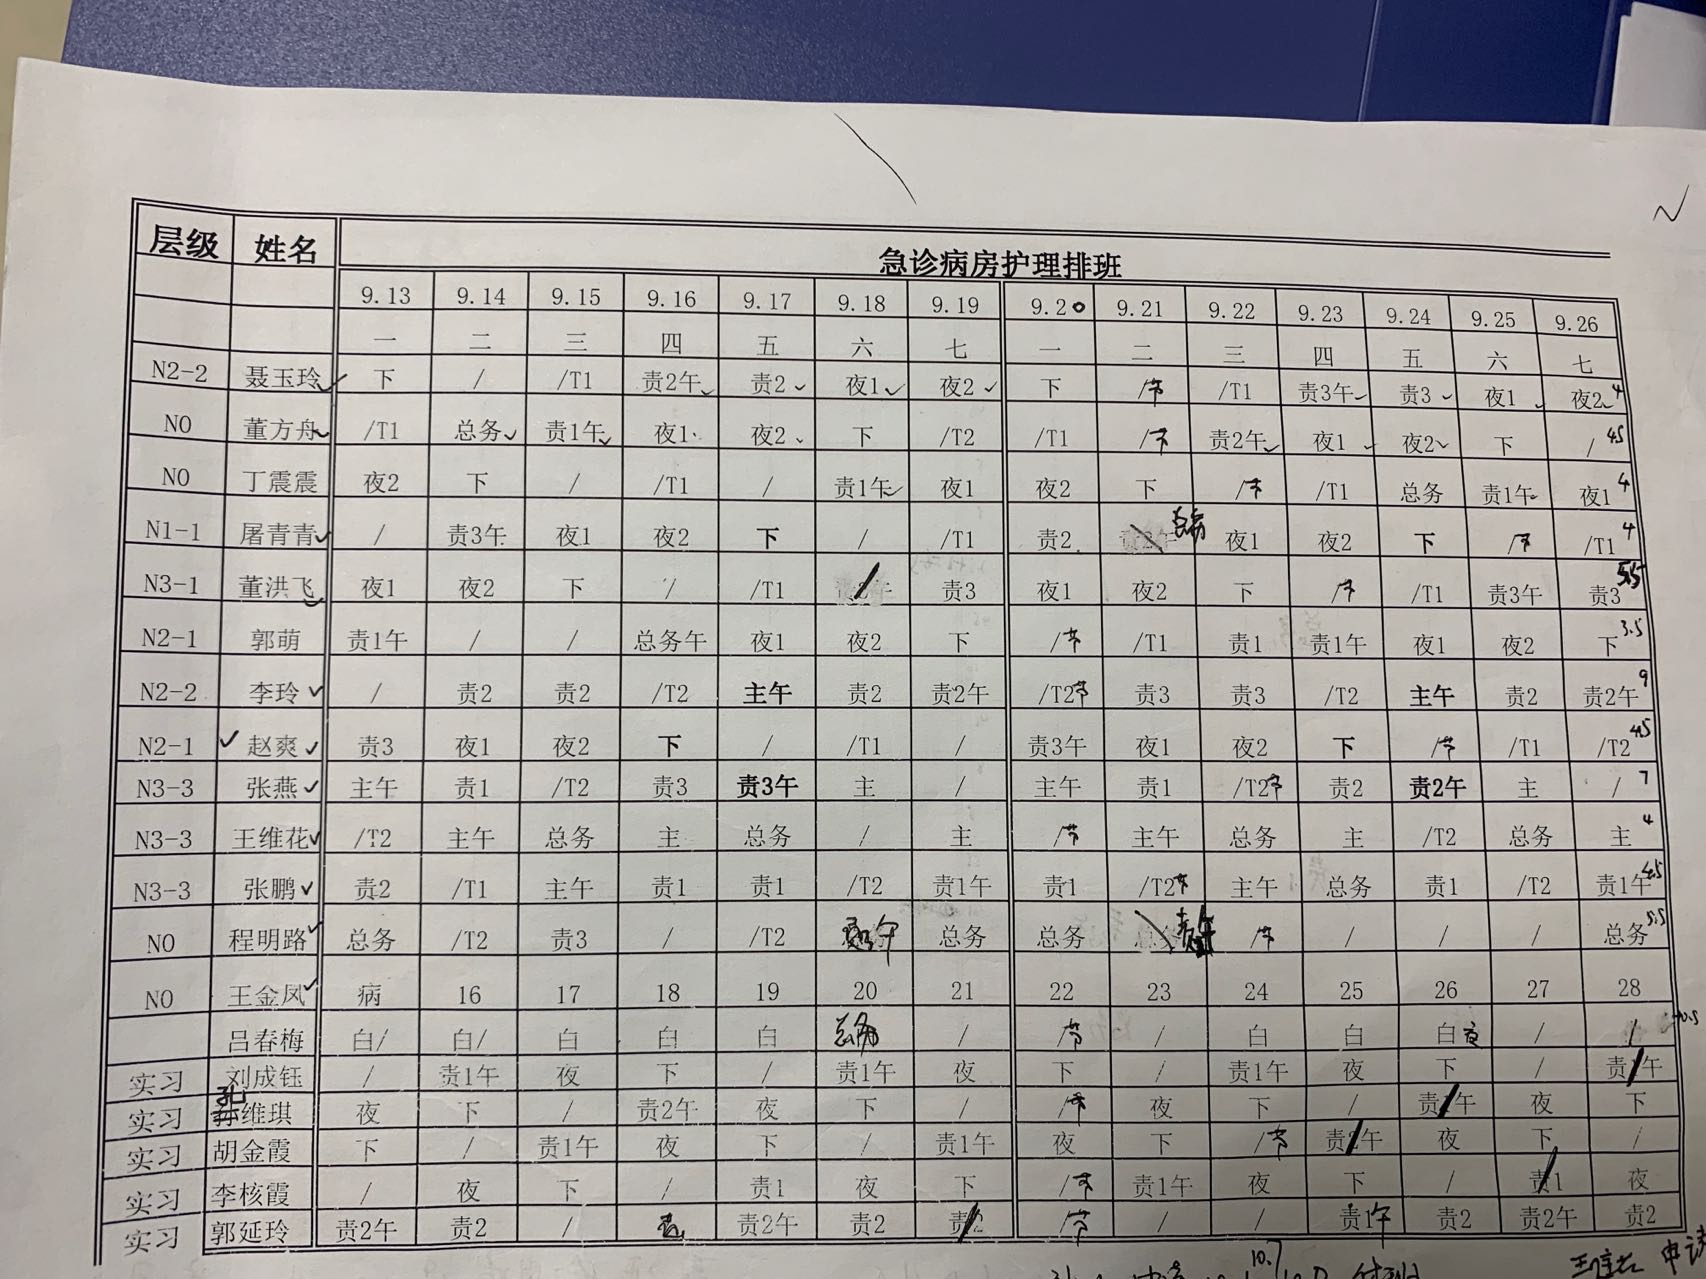 层级 姓名 急诊病房护理排班
9.13 9.14 9.15 9.16 9.17 9.18 9.19 9.20 9.21 9.22 9.23 9.24 9.25 9.26
一 二 三 四 五 六 七 一 二 三 四 五 六 七
N2-2 聂玉玲 下 / /T1 责2午 责2 夜1 夜2 下 /节 /T1 责3午 责3 夜1 夜2 4
N0 董方舟 /T1 总务 责1午 夜1 夜2 下 /T2 /T1 /节 责2午 夜1 夜2 下 / 45
N0 丁震震 夜2 下 / /T1 / 责1午 夜1 夜2 下 /节 /T1 总务 责1午 夜1 4
N1-1 屠青青 / 责3午 夜1 夜2 下 / /T1 责2 总务 夜1 夜2 下 /节 /T1 4
N3-1 董洪飞 夜1 夜2 下 / /T1 / 责3 夜1 夜2 下 /节 /T1 责3午 责3 5.5
N2-1 郭萌 责1午 / / 总务午 夜1 夜2 下 /节 /T1 责1 责1午 夜1 夜2 下 3.5
N2-2 李玲 / 责2 责2 /T2 主午 责2 责2午 /T2节 责3 责3 /T2 主午 责2 责2午 9
N2-1 赵爽 责3 夜1 夜2 下 / /T1 / 责3午 夜1 夜2 下 /节 /T1 /T2 45
N3-3 张燕 主午 责1 /T2 责3 责3午 主 / 主午 责1 /T2节 责2 责2午 主 / 7
N3-3 王维花 /T2 主午 总务 主 总务 / 主 /节 主午 总务 主 /T2 总务 主 4
N3-3 张鹏 责2 /T1 主午 责1 责1 /T2 责1午 责1 /T2节 主午 总务 责1 /T2 责1午 4.5
N0 程明路 总务 /T2 责3 / /T2 总务 总务 /节 / / / 总务 5.5
N0 王金凤 病 16 17 18 19 20 21 22 23 24 25 26 27 28
吕春梅 白/ 白/ 白 白 白 总务 / /节 / 白 白 白 / /
实习 刘成钰 / 责1午 夜 下 / 责1午 夜 下 / 责1午 夜 下 / 责1午
实习 孔维琪 夜 下 / 责2午 夜 下 / /节 夜 下 / 责 午 夜 下
实习 胡金霞 下 / 责1午 夜 下 / 责1午 夜 下 /节 责 午 夜 下 /
实习 李核霞 / 夜 下 / 责1 夜 下 /节 责1午 夜 下 / 责1 夜
实习 郭延玲 责2午 责2 / 责2午 责2 责2 /节 / / 责1午 责2 责2午 责2
10.7